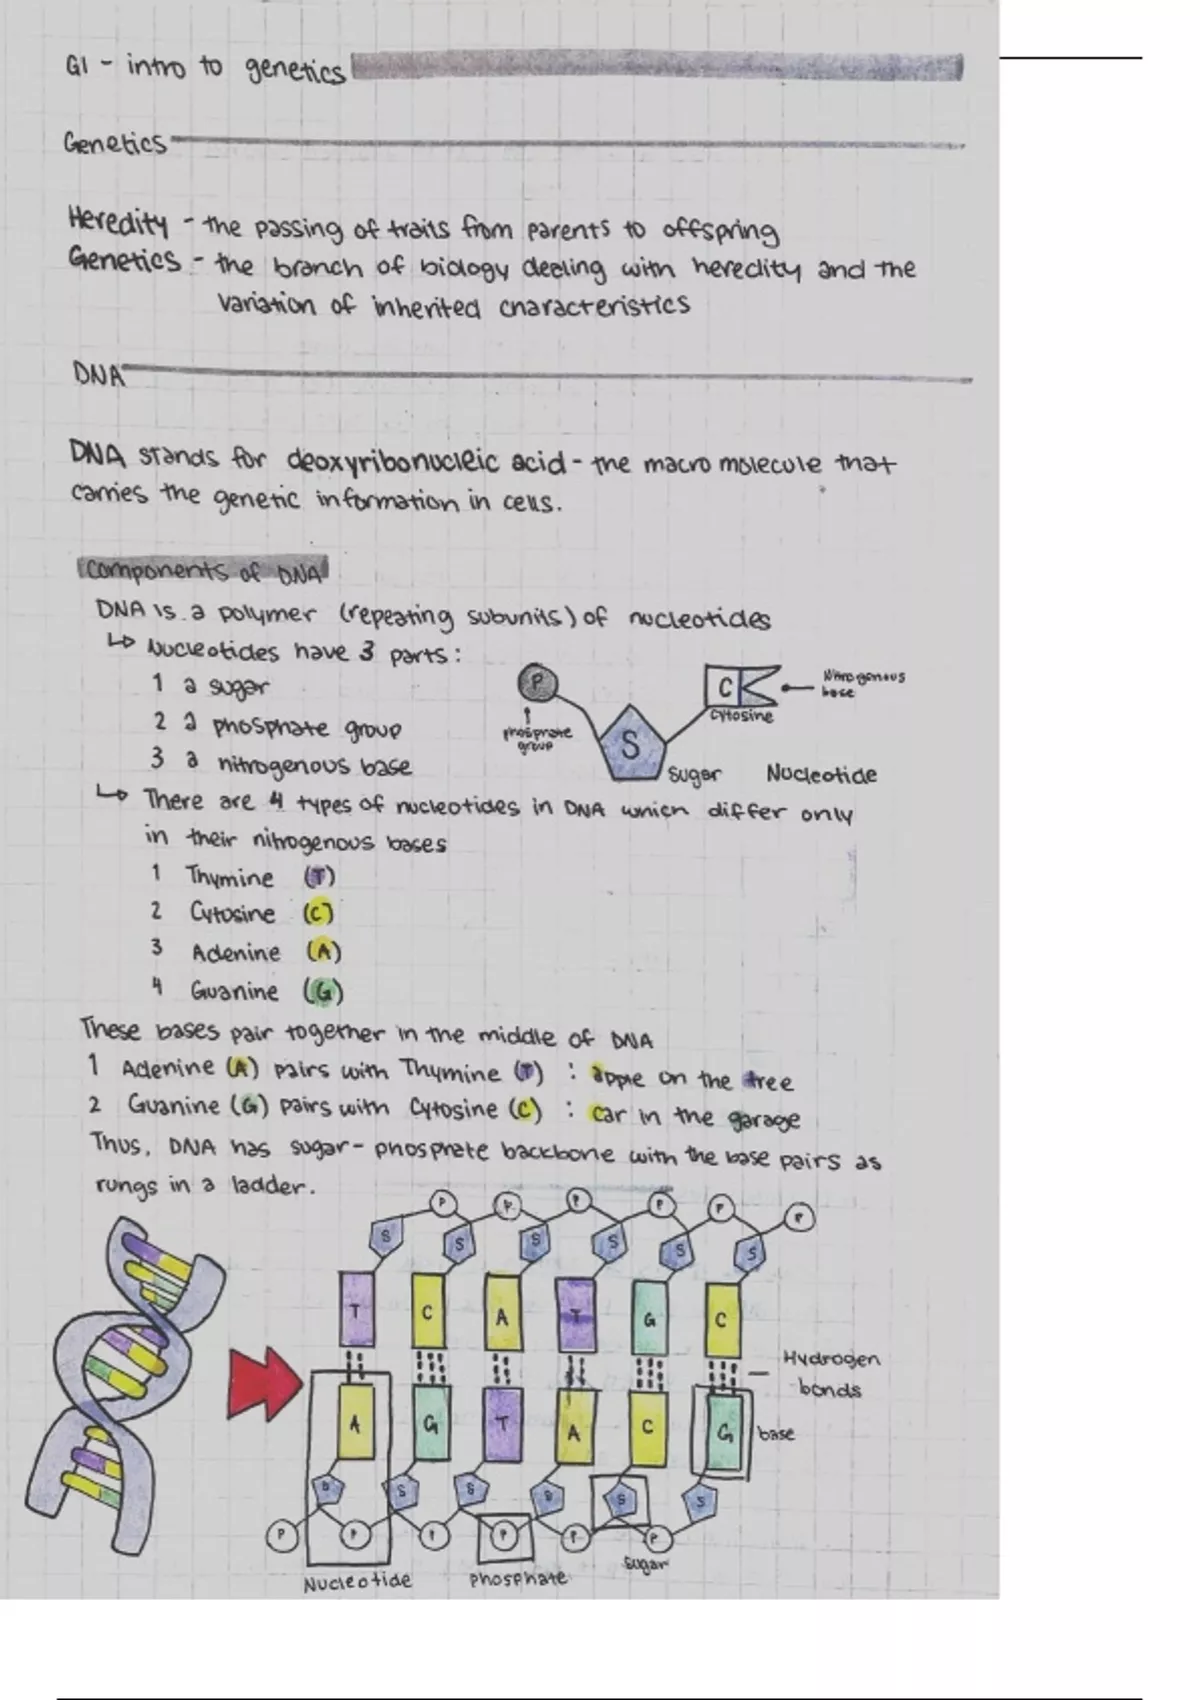 G1 - intro to genetics
Genetics
Heredity - the passing of traits from parents to offspring
Genetics - the branch of biology dealing with heredity and the
variation of inherited characteristics
DNA
DNA stands for deoxyribonucleic acid - the macro molecule that
carries the genetic information in cells.
Components of DNA
DNA is a polymer (repeating subunits) of nucleotides
↳ Nucleotides have 3 parts:
1 a sugar
2 a phosphate group
3 a nitrogenous base
P
phosphate
group
S
sugar
C
cytosine
Nitrogenous
base
Nucleotide
↳ There are 4 types of nucleotides in DNA which differ only
in their nitrogenous bases
1 Thymine (T)
2 Cytosine (C)
3 Adenine (A)
4 Guanine (G)
These bases pair together in the middle of DNA
1 Adenine (A) pairs with Thymine (T) : apple on the tree
2 Guanine (G) pairs with Cytosine (C) : car in the garage
Thus, DNA has sugar-phosphate backbone with the base pairs as
rungs in a ladder.
P P P P P P
S S S S S S
T C A T G C
Hydrogen
bonds
A G T A C G base
S S S S S S
P P P P P P
Nucleotide phosphate sugar